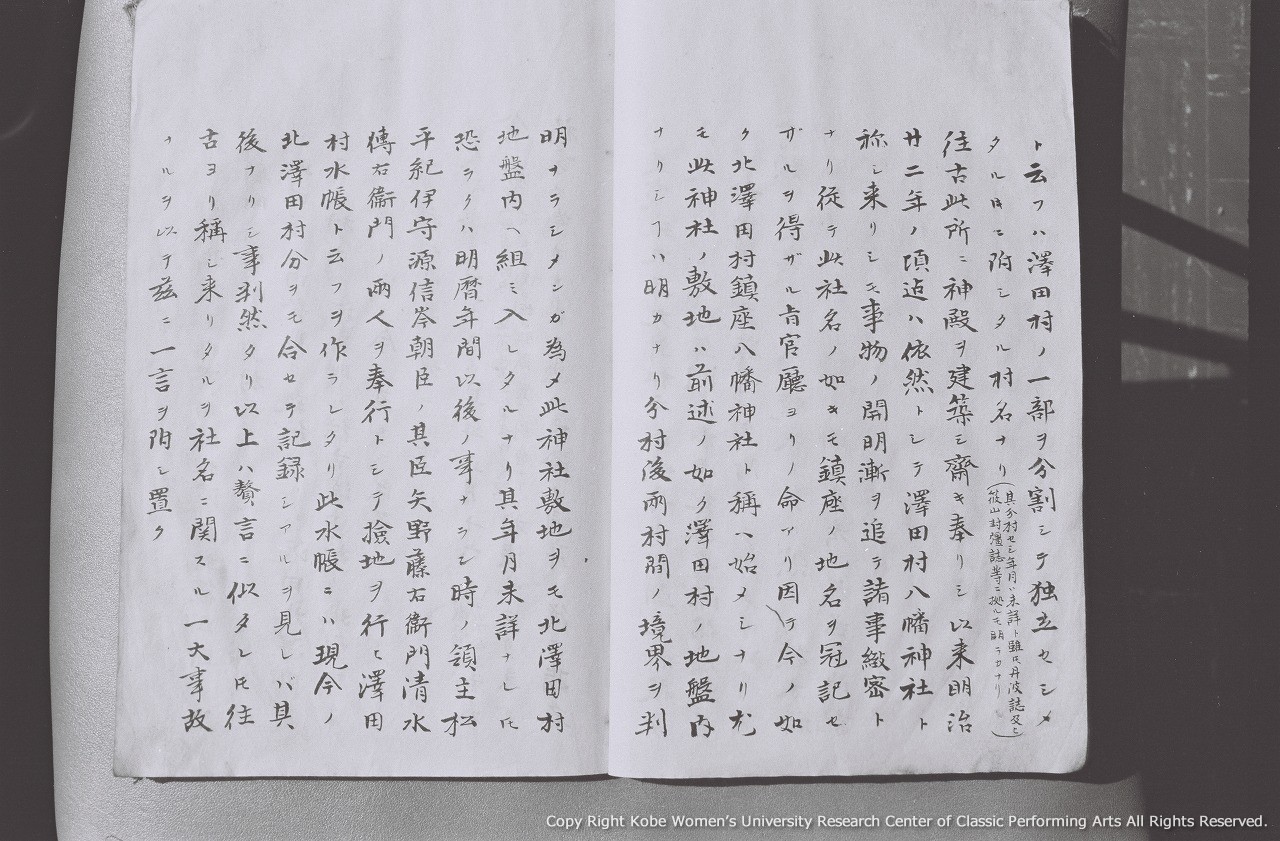 ト云フハ澤田村ノ一部ヲ分割シテ独立セシメ
タル時ニ附シタル村名ナリ(其分村セシ年月ハ未詳ト雖ㇳモ丹波誌及ヒ
篠山封彊誌等ニ拠ルモ明ラカナリ)
往古此所ニ神殿ヲ建築シ齋キ奉リシ以来明治
廿二年ノ頃迠ハ依然トシテ澤田村八幡神社ト
称シ来リシモ事物ノ開明漸ヲ追テ諸事緻密ト
ナリ従テ此社名ノ如キモ鎮座ノ地名ヲ冠記セ
ザルヲ得ザル旨官廳ヨリノ命アリ因テ今ノ如
ク北澤田村鎮座八幡神社ト稱ヘ始メシナリ尤
モ此神社ノ敷地ハ前述ノ如ク澤田村ノ地盤内
ナリシヿハ明カナリ分村後両村間ノ境界ヲ判
明ナラシメンガ為メ此神社敷地ヲモ北澤田村
地盤内ヘ組ミ入レタルナリ其年月未詳ナレ𪜈
恐ラクハ明暦年間以後ノ事ナラン時ノ領主松
平紀伊守源信岑朝臣ノ其臣矢野藤右衛門清水
傳右衛門ノ両人ヲ奉行トシテ撿地ヲ行ヒ澤田
村水帳ト云フヲ作ラレタリ此水帳ニハ現今ノ
北澤田村分ヲモ合セテ記録シアルヲ見レバ其
後ナリシ事判然タリ以上ハ贅言ニ似タレ𪜈往
古ヨリ稱シ来リタルヲ社名ニ関スル一大事故
ナルヲ以テ茲ニ一言ヲ附シ置ク
Copy Right Kobe Women's University Research Center of Classic Performing Arts All Rights Reserved.